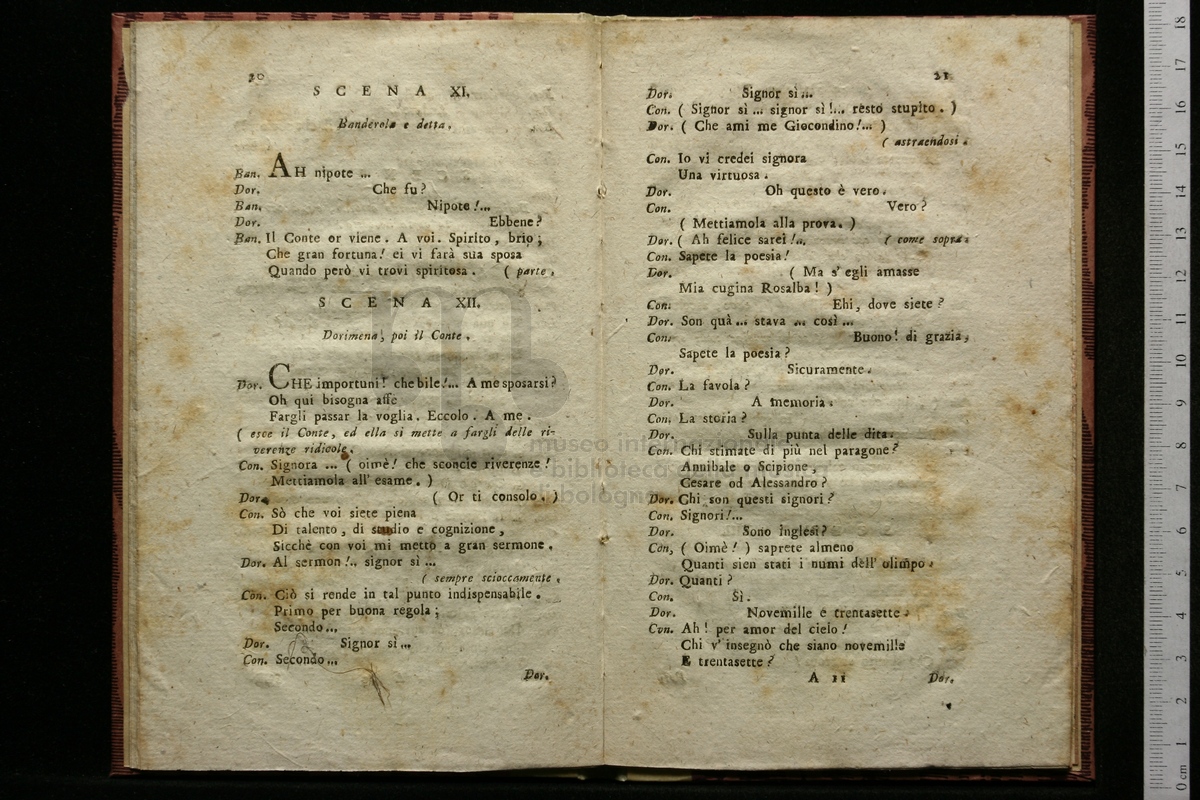 20
SCENA XI.
Banderola e detta.
Ban. AH nipote ...
Dor. Che fu?
Ban. Nipote!...
Dor. Ebbene?
Ban. Il Conte or viene. A voi. Spirito, brio;
Che gran fortuna! ei vi farà sua sposa
Quando però vi trovi spiritosa. (parte.
SCENA XII.
Dorimena, poi il Conte.
Dor. CHE importuni! che bile!... A me sposarsi?
Oh qui bisogna affè
Fargli passar la voglia. Eccolo. A me.
( esce il Conte, ed ella si mette a fargli delle ri-
verenze ridicole.
Con. Signora ... ( oimè! che sconcie riverenze!
Mettiamola all' esame. )
Dor. ( Or ti consolo. )
Con. Sò che voi siete piena
Di talento, di studio e cognizione,
Sicchè con voi mi metto a gran sermone.
Dor. Al sermon!.. signor sì ...
( sempre scioccamente.
Con. Ciò si rende in tal punto indispensabile.
Primo per buona regola;
Secondo...
Dor. Signor sì...
Con. Secondo...
Dor.
21
Dor. Signor sì...
Con. ( Signor sì ... signor sì!... resto stupito. )
Dor. ( Che ami me Giocondino!... )
( astraendosi.
Con. Io vi credei signora
Una virtuosa.
Dor. Oh questo è vero.
Con. Vero?
( Mettiamola alla prova. )
Dor. ( Ah felice sarei!.. ( come sopra.
Con. Sapete la poesia!
Dor. ( Ma s' egli amasse
Mia cugina Rosalba! )
Con. Ehi, dove siete?
Dor. Son quà ... stava ... così ...
Con. Buono! di grazia,
Sapete la poesia?
Dor. Sicuramente.
Con. La favola?
Dor. A memoria.
Con. La storia?
Dor. Sulla punta delle dita.
Con. Chi stimate di più nel paragone?
Annibale o Scipione,
Cesare od Alessandro?
Dor. Chi son questi signori?
Con. Signori!...
Dor. Sono inglesi?
Con, ( Oimè! ) saprete almeno
Quanti sien stati i numi dell' olimpo.
Dor. Quanti?
Con. Sì.
Dor. Novemille e trentasette.
Con. Ah! per amor del cielo!
Chi v' insegnò che siano novemille
E trentasette?
A 11
Dor.
museo internazionale
e biblioteca della musica
di bologna